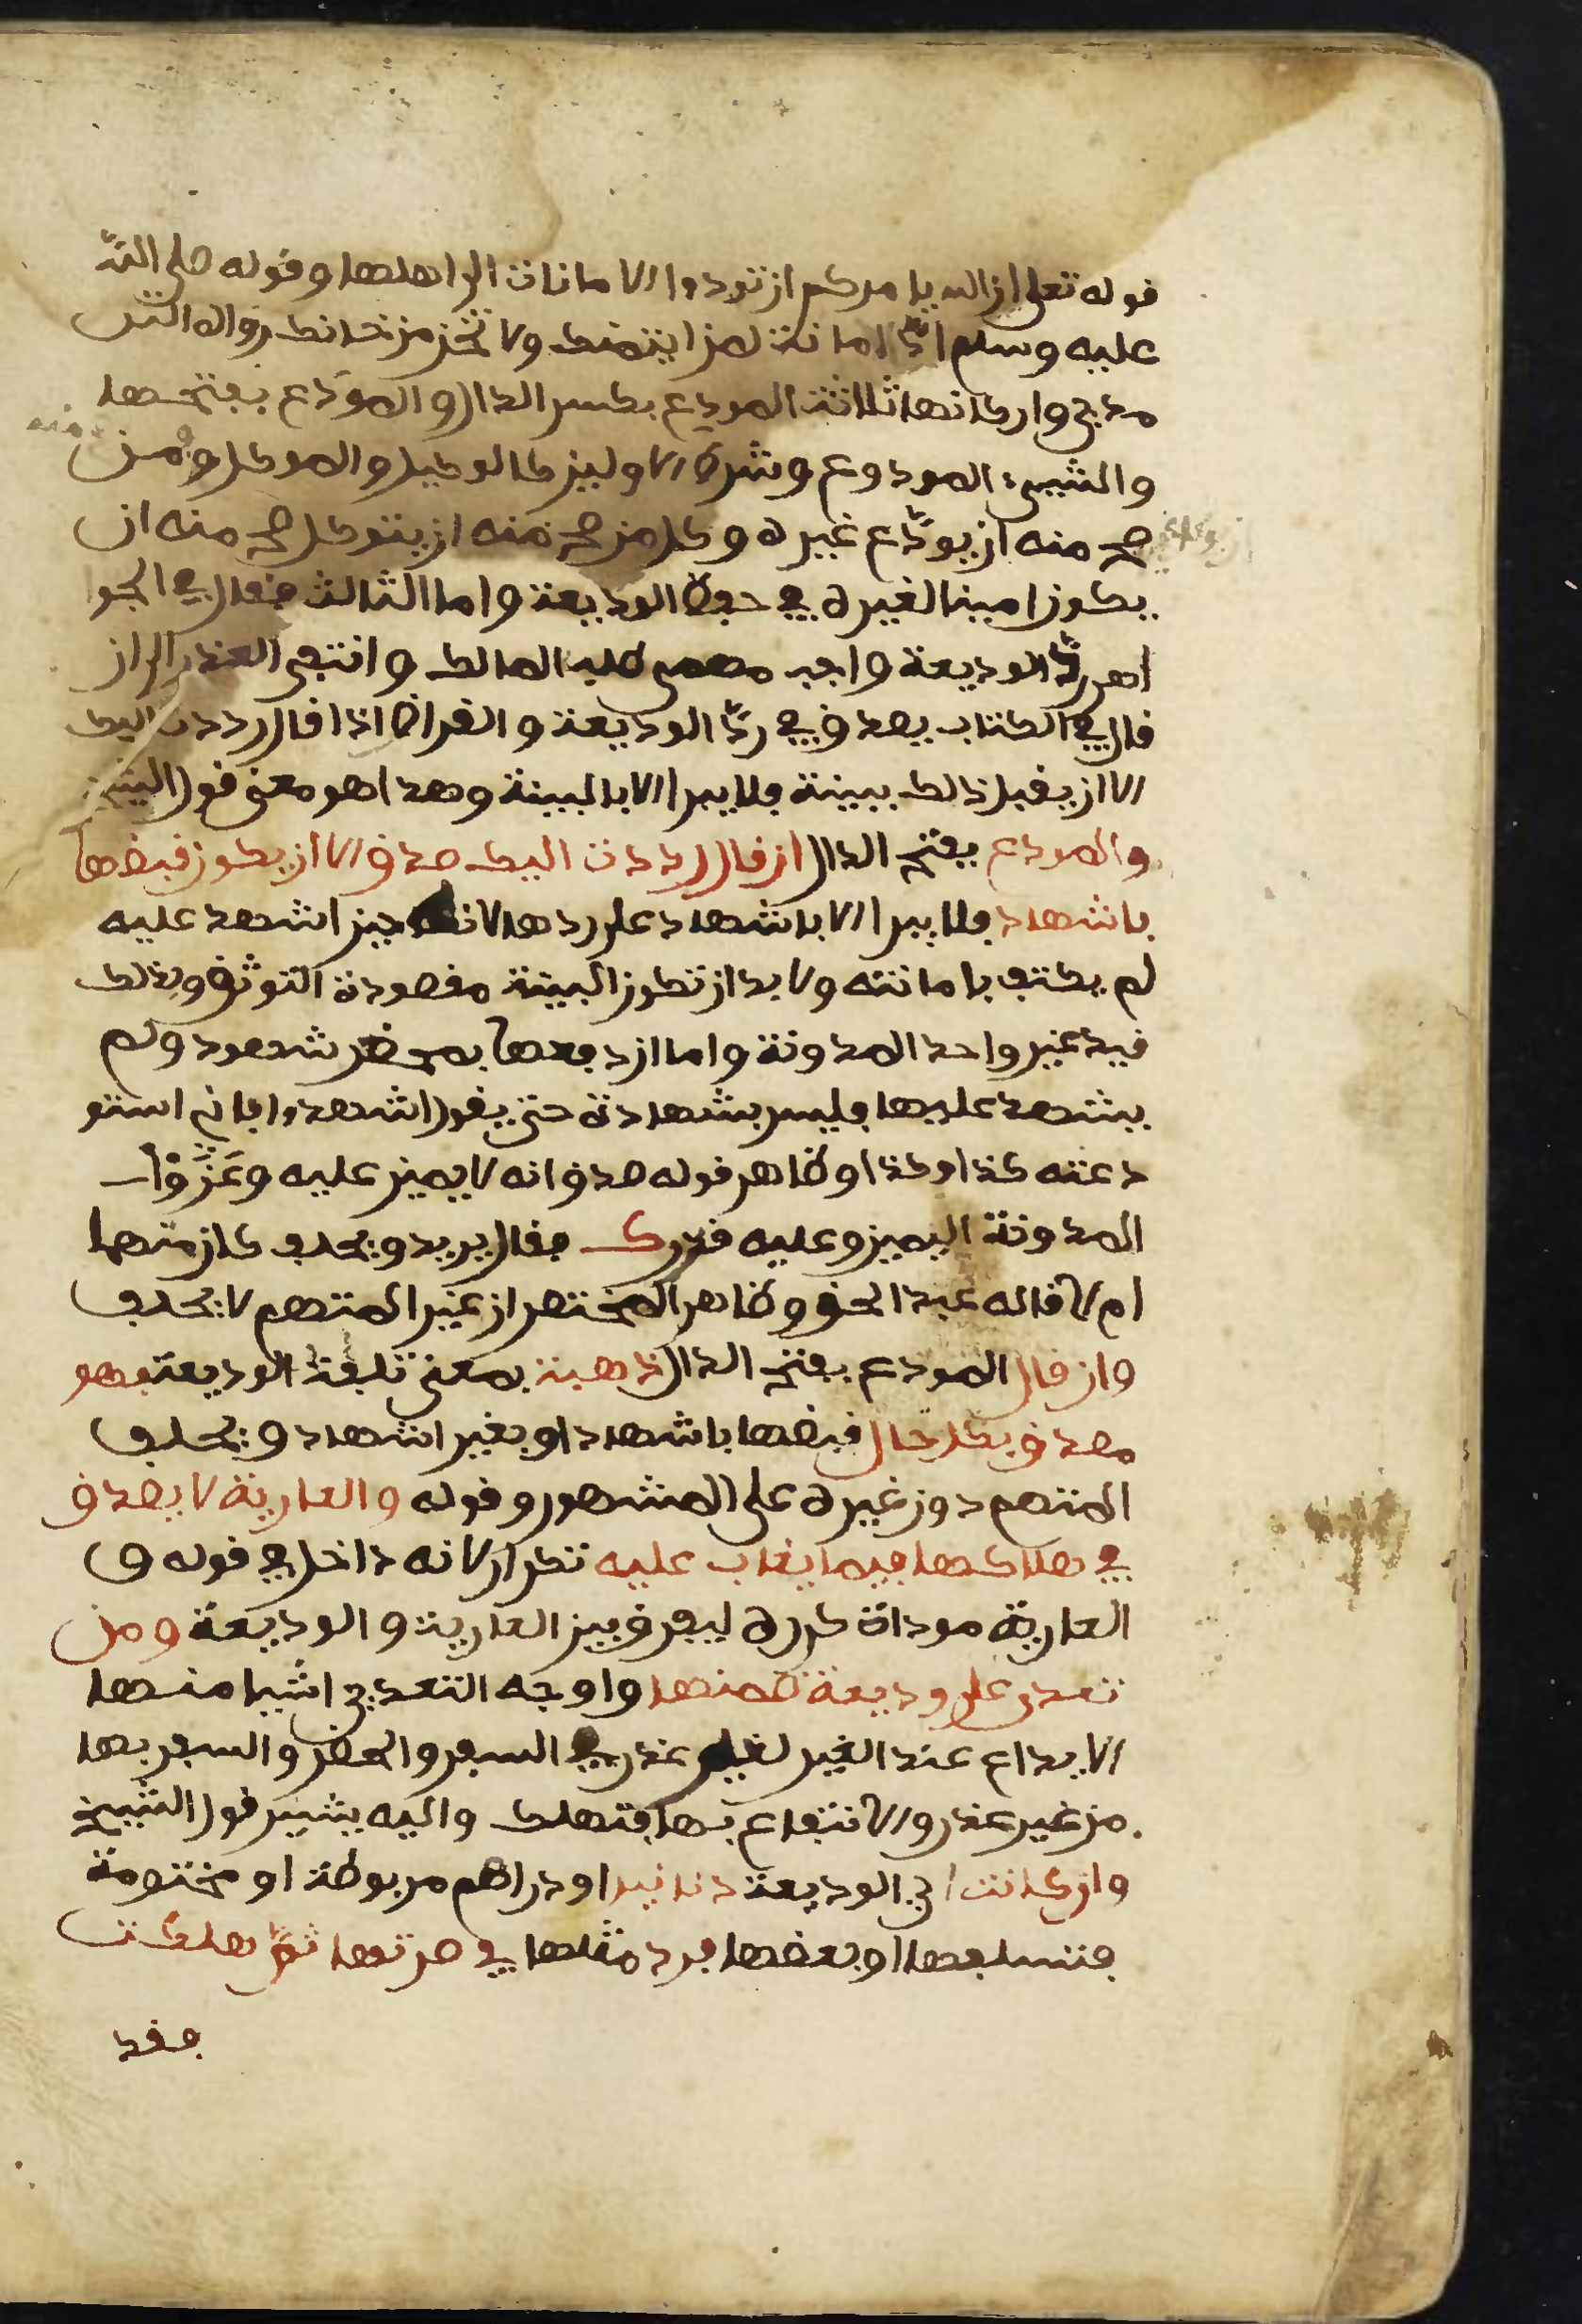 قوله تعلى ان الله يامركم ان تودوا الامانات الى اهلها وقوله صلى الله
عليه وسلم ادّ الامانة لمن ايتمنك ولا تخن من خانك رواه التر
مدي واركانها ثلاثة المودِع بكسر الدال والمودَع بفتحها
والشيء المودوع وشرط الاولين كالوكيل والموكل ومن
صح منه ان يودّع غيره وكل من صح منه ان يتوكل صح منه ان
يكون امينا لغيره في حفظ الوديعة واما الثالث فقال في الجوا
هر ردّ الوديعة واجب مهمى طلب المالك وانتفى العذر الى ان
قال في الكتاب يصدق في ردّ الوديعة والقراض اذا قال رددت اليك
الا ان يقبل ذالك ببينة فلا يبرا الا بالبينة وهذا هو معنى قول الشيخ
والمودع بفتح الدال ان قال رددت اليك صدق الا ان يكون قبضها
باشهاد فلا يبرا الا باشهاد على ردها لانه حين اشهد عليه
لم يكتف بامانته ولا بد ان تكون البينة مقصودة التوثق وبذلك
قيد غير واحد المدونة واما ان دفعها بمحضر شهود ولم
يشهد عليها فليس بشهادة حتى يقول اشهدوا باني استو
دعته كذا وكذا وظاهر قوله صدق انه لا يمين عليه وعَزَوْا
المدونة اليمين وعليه فقال يريد ويحلف كان متهما
ام لا قاله عبد الحق وظاهر المختصر ان غير المتهم لا يحلف
وان قال المودع بفتح الدال ذهبت بمعنى تلفت الوديعة فهو
مصدق بكل حال قبضها باشهاد او بغير اشهاد ويحلف
المتهم دون غيره على المشهور وقوله والعارية لا يصدق
في هلاكها فيما يغاب عليه تكرار لانه داخل في قوله و
العارية موداة كرره ليفرق بين العارية والوديعة ومن
تعدى على وديعة ضمنها واوجه التعدي اشيا منها
الايداع عند الغير لغير عذر في السفر والحضر والسفر بها
من غير عذر والانتفاع بها فتهلك واليه يشير قول الشيخ
وان كانت اي الوديعة دنانير او دراهم مربوطة او مختومة
فتسلفها او بعضها فرد مثلها في صرتها ثمّ هلكت
فقد